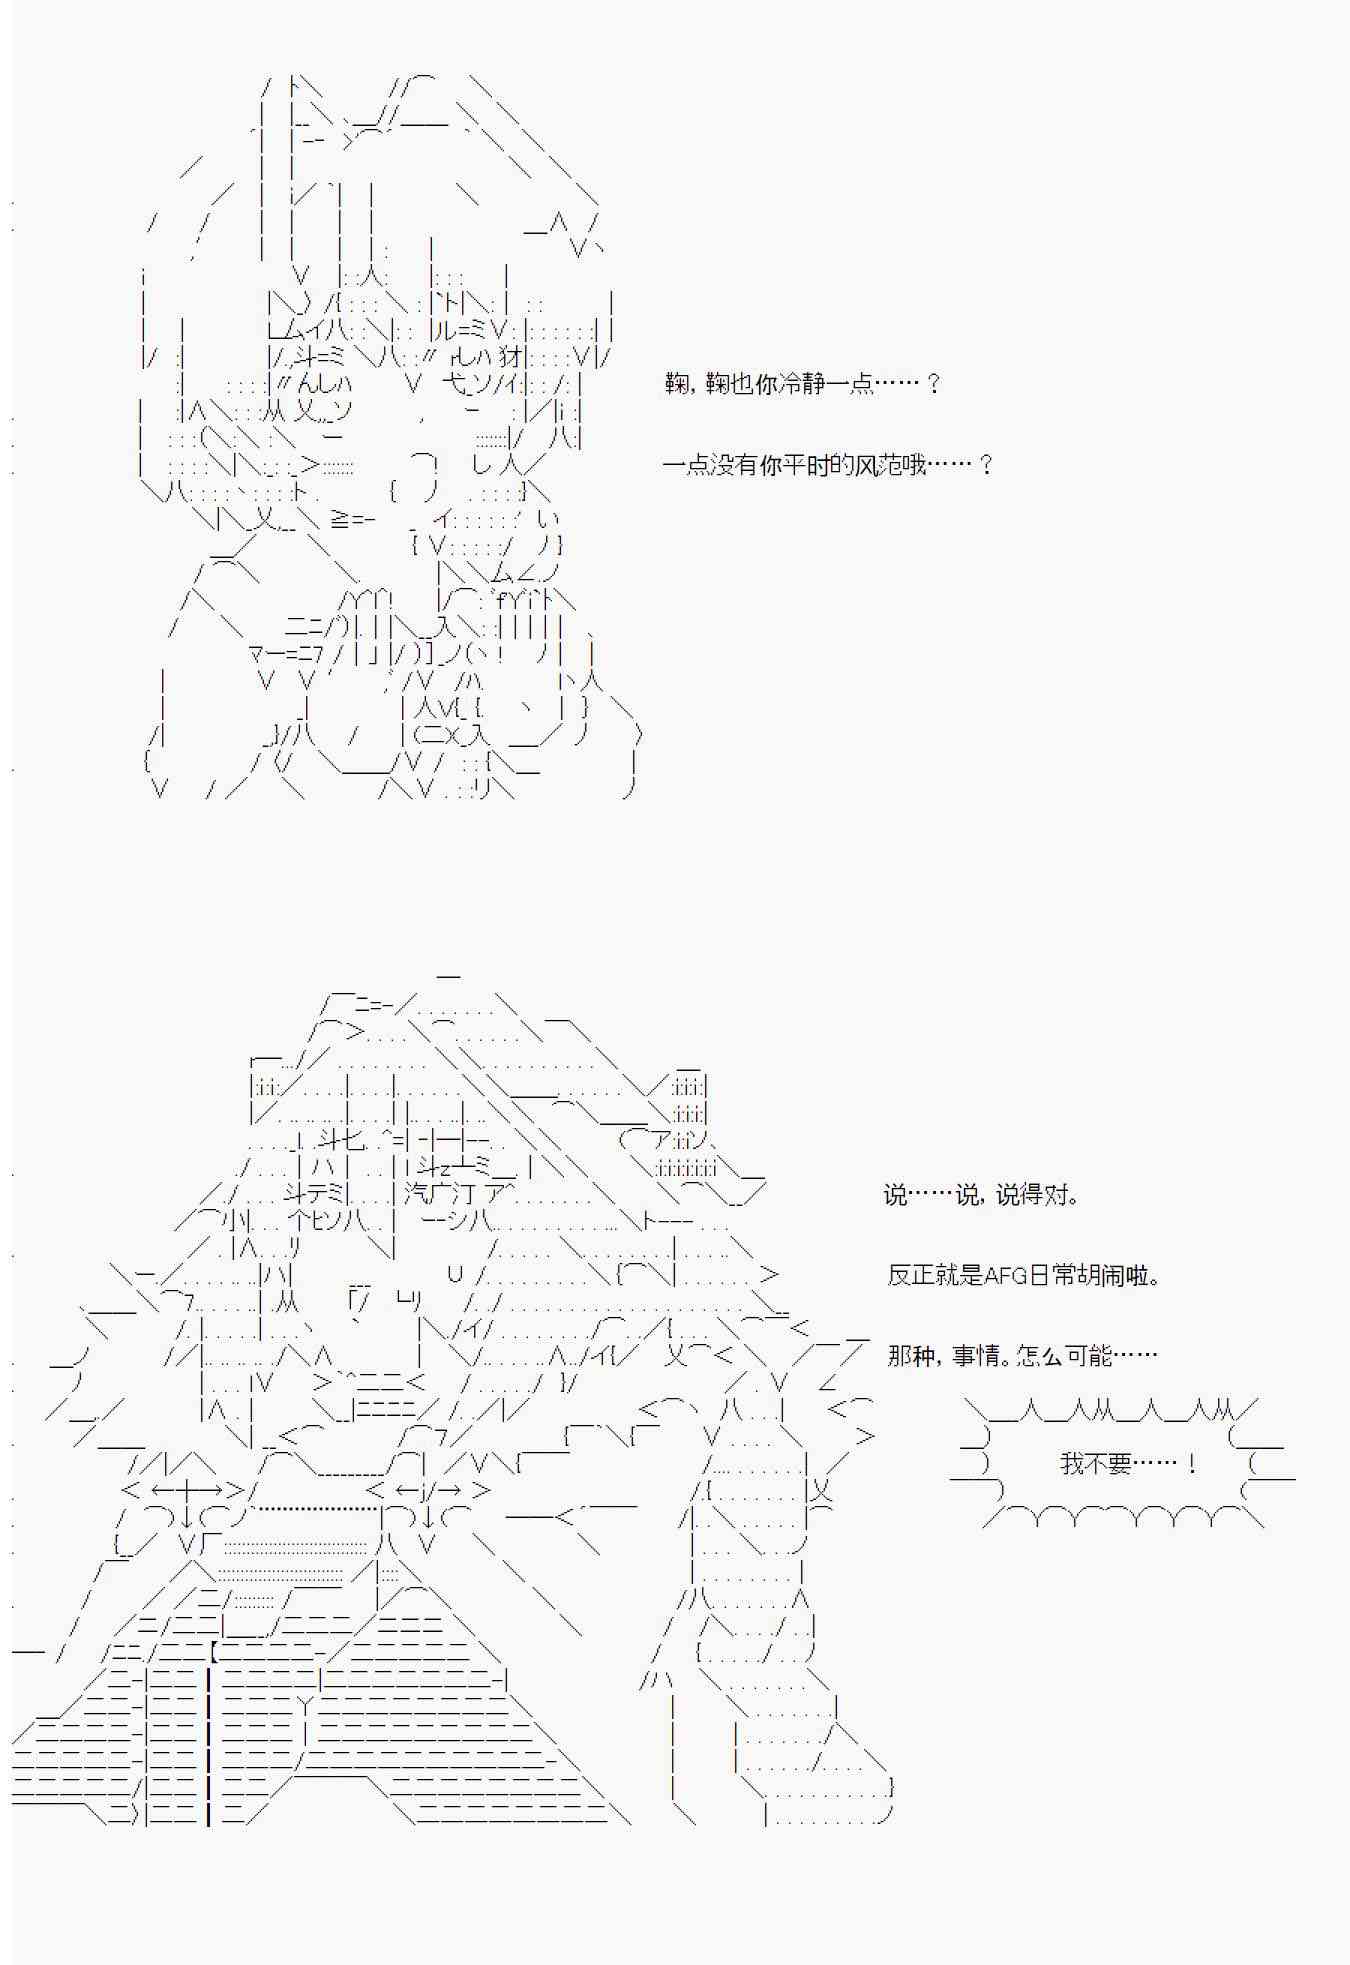 鞠，鞠也你冷静一点……？
一点没有你平时的风范哦……？
说……说，说得对。
反正就是AFG日常胡闹啦。
那种，事情。怎么可能……
我不要……！